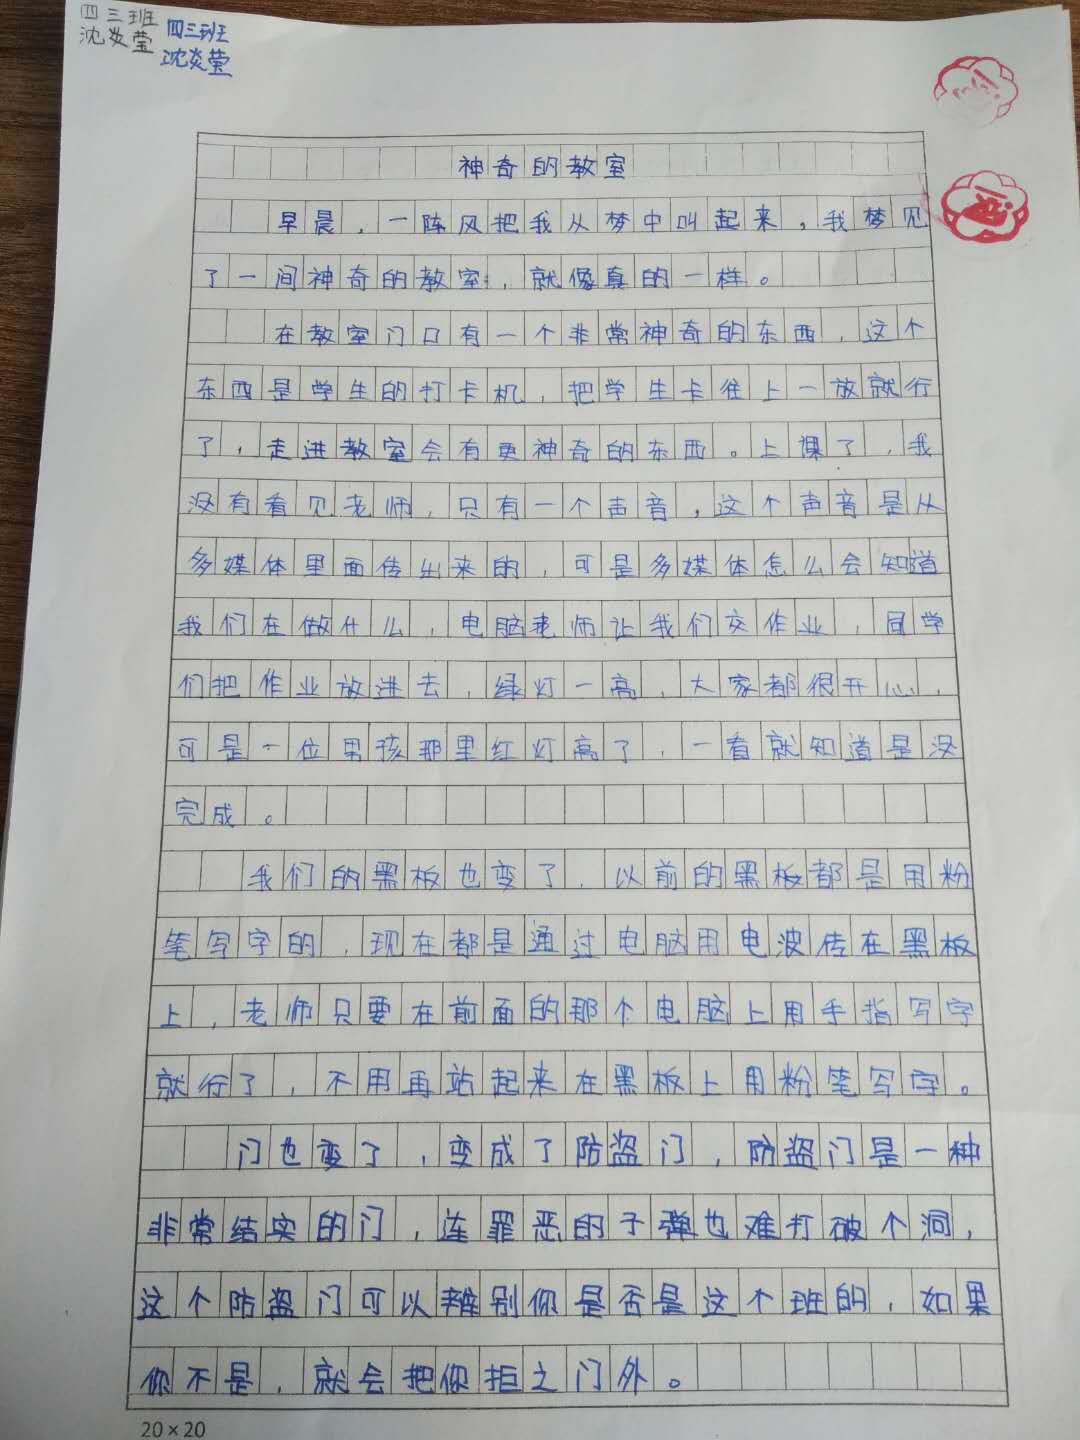 四三班
沈炎莹
四三班
沈炎莹
神奇的教室
早晨，一阵风把我从梦中叫起来，我梦见
了一间神奇的教室，就像真的一样。
在教室门口有一个非常神奇的东西，这个
东西是学生的打卡机，把学生卡往上一放就行
了，走进教室会有更神奇的东西。上课了，我
没有看见老师，只有一个声音，这个声音是从
多媒体里面传出来的，可是多媒体怎么会知道
我们在做什么，电脑老师让我们交作业，同学
们把作业放进去，绿灯一高，大家都很开心，
可是一位男孩那里红灯高了，一看就知道是没
完成。
我们的黑板也变了，以前的黑板都是用粉
笔写字的，现在都是通过电脑用电波传在黑板
上，老师只要在前面的那个电脑上用手指写字
就行了，不用再站起来在黑板上用粉笔写字。
门也变了，变成了防盗门，防盗门是一种
非常结实的门，连罪恶的子弹也难打破个洞，
这个防盗门可以辨别你是否是这个班的，如果
你不是，就会把你拒之门外。
20×20